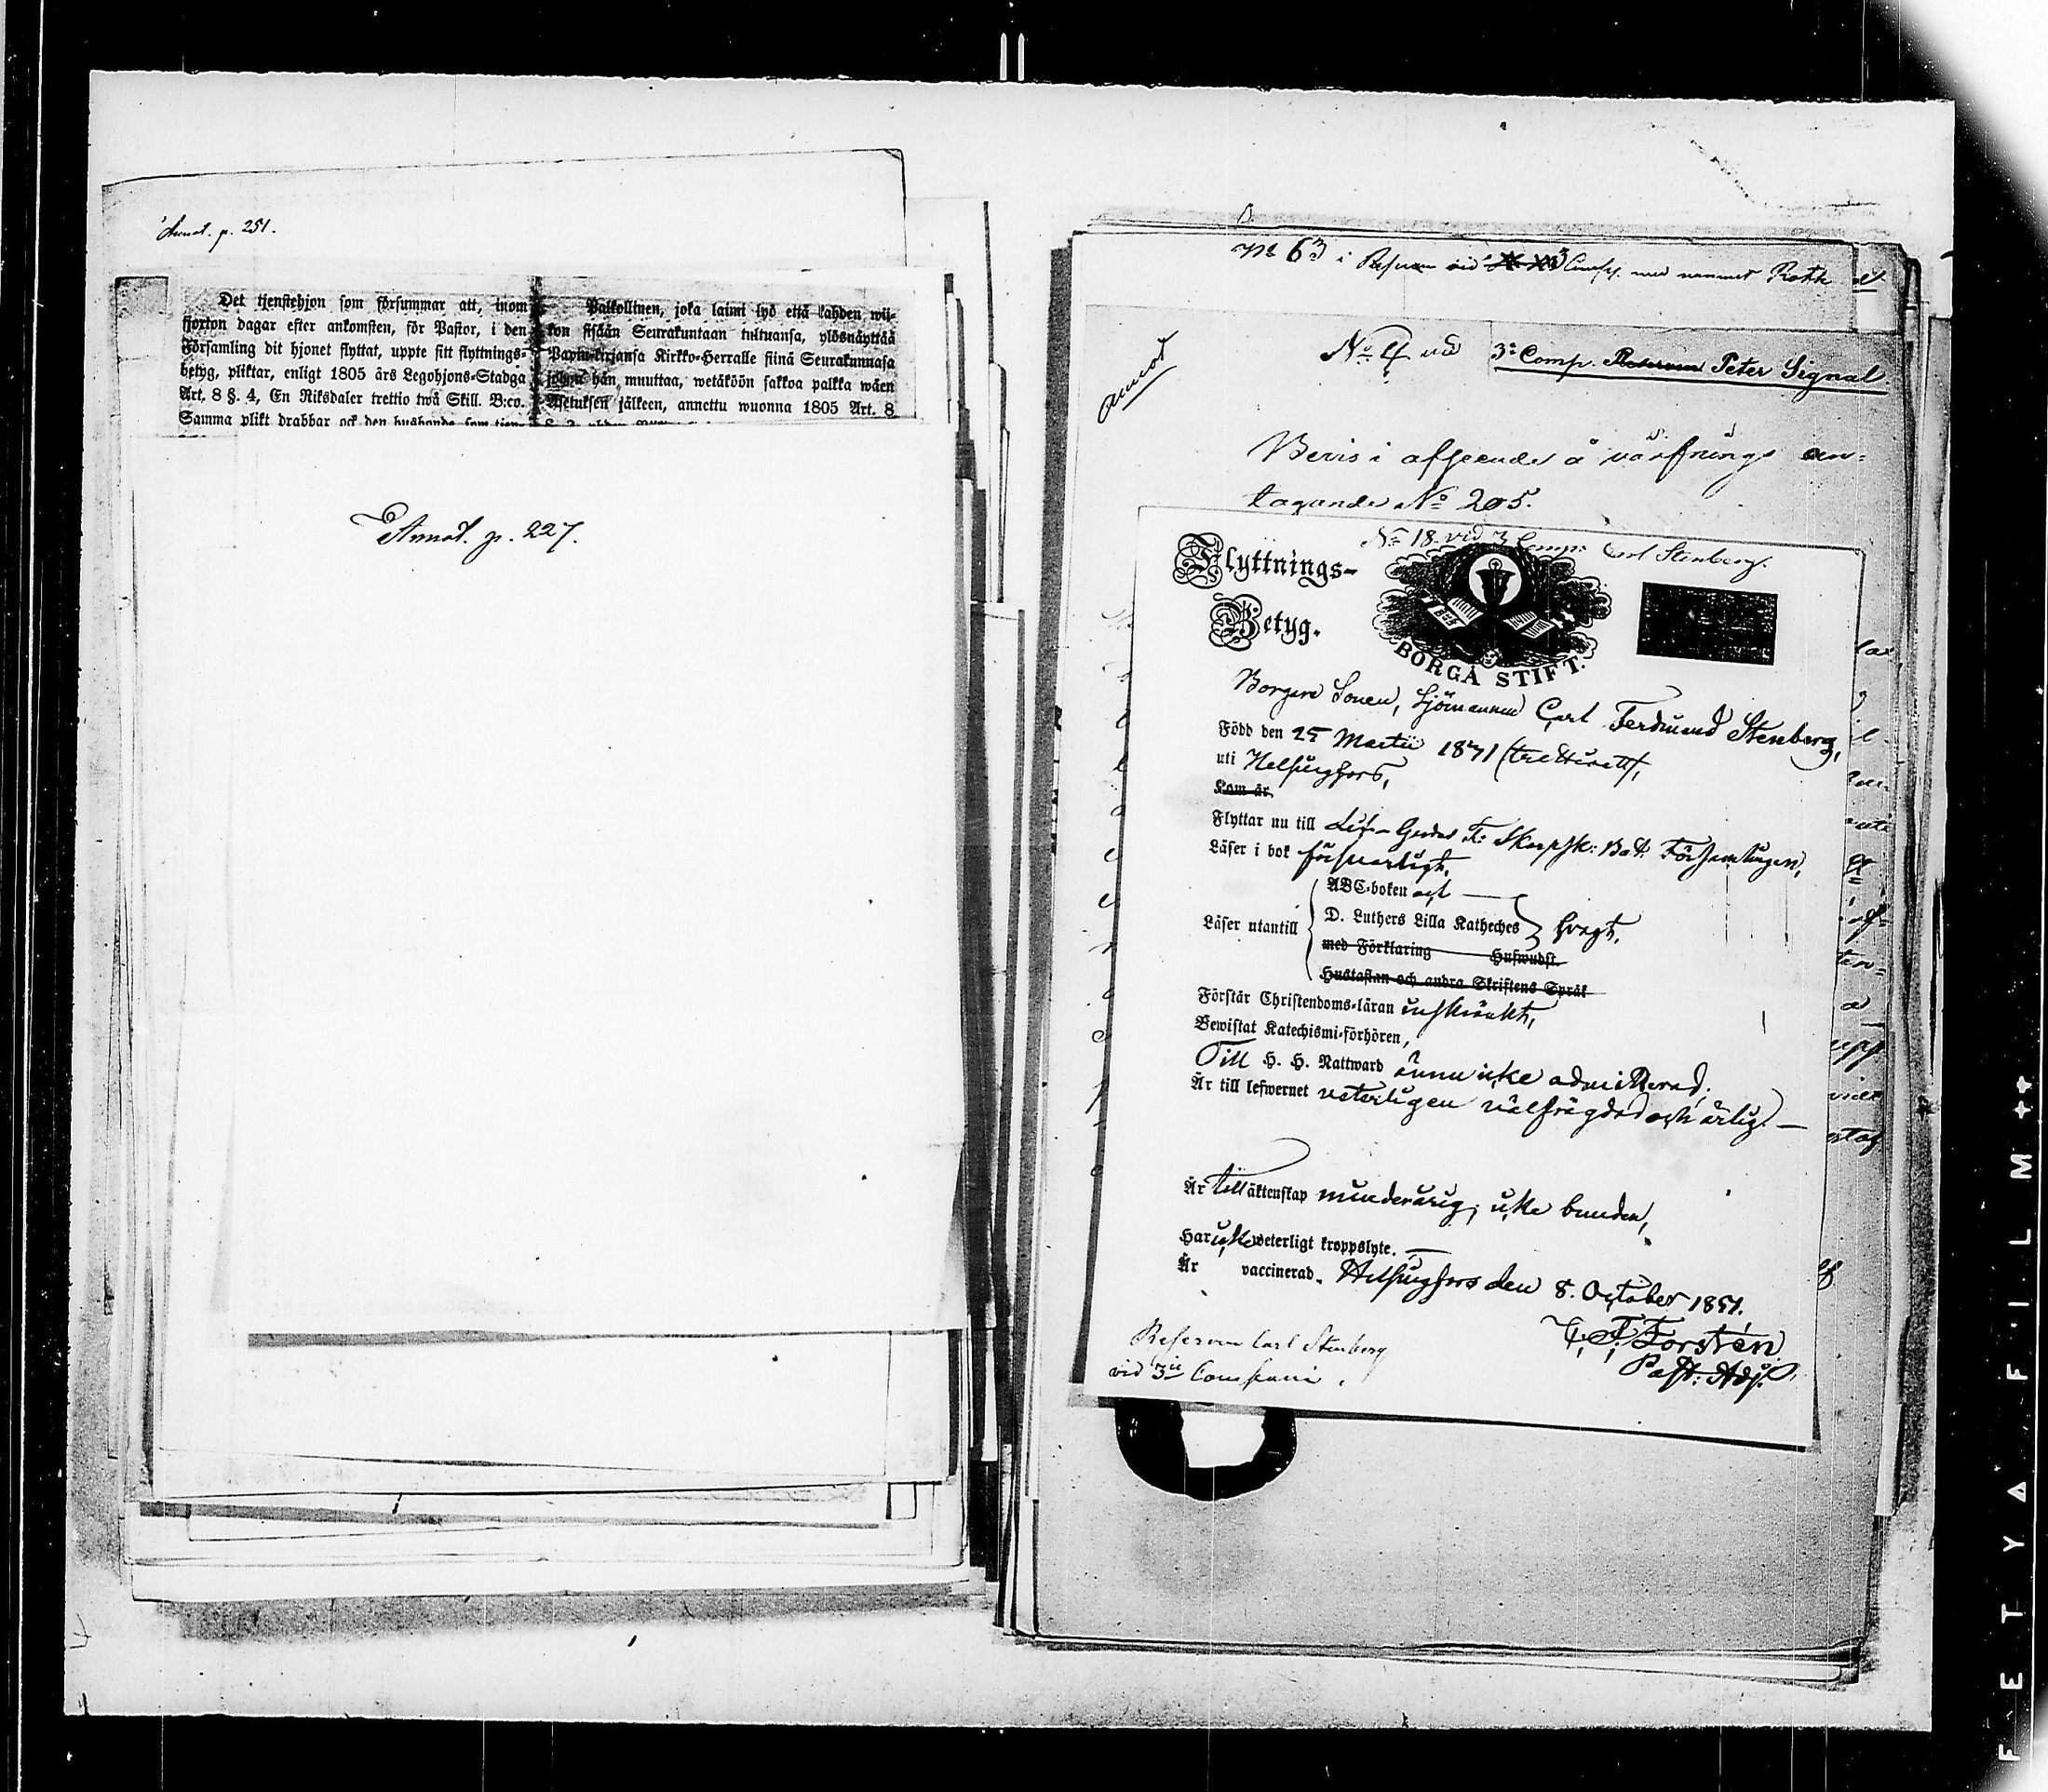 Annot. p. 251.
Det tjenstehjon som försummar att, inom
fjorton dagar efter ankomsten, för Pastor, i den
Församling dit hjonet flyttat, uppte sitt flyttnings-
betyg, pliktar, enligt 1805 års Legohjons-Stadga
Art. 8 §. 4, En Riksdaler trettio twå Skill. B:co.
Samma plikt drabbar ock den husbonde som tjen-
Palkollinen, joka laimi lyö että kahden wii-
kon sisään Seurakuntaan tultuansa, ylösnäyttää
Papin-kirjansa Kirkko-Herralle siinä Seurakunnasa
johon hän muuttaa, wetäköön sakkoa palkka wäen
Asetuksen jälkeen, annettu wuonna 1805 Art. 8
Annot. p. 227.
No 63 i Reserven vid 3 Comp. med namnet Rothe
annot
No 4 vid 3e Comp. Reserven Peter Signal.
Bevis i afseende å värfnings an-
tagande No 205.
No 18 vid 3 Comp: Carl Stenberg.
Flyttnings-
Betyg.
BORGÅ STIFT.
Borgare Sonen, Sjömannen Carl Ferdinand Stenberg,
Född den 25 Martii 1831 (trettioett),
uti Helsingfors,
Kom år
Flyttar nu till Lif-Gardes F: Skarpsk: Bat: Församlingen,
Läser i bok försvarligt,
Läser utantill
ABC-boken och
D. Luthers Lilla Katheches svagt,
med Förklaring Huswudst.
Hustaflan och andra Skriftens Språk
Förstår Christendoms-läran inskränkt,
Bewistat Katechismi-förhören,
Till H. H. Nattward ännu icke admitterad,
Är till lefwernet veterligen välfrägdad och ärlig.
Är till äktenskap minderårig, icke bunden,
Har icke weterligt kroppslyte.
Är vaccinerad. Helsingfors den 8. October 1851.
C. F. Forstén
Past: Adj.
Reserven Carl Stenberg
vid 3ie Compani.
FETYA FILM ++